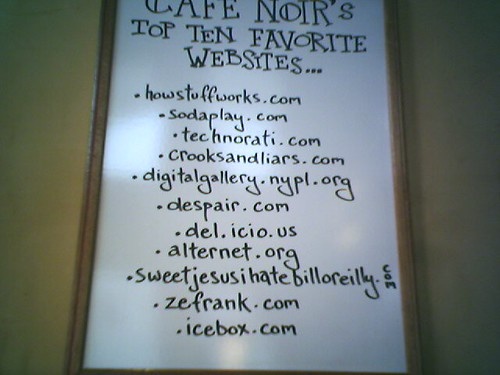 CAFE NOIR'S
TOP TEN FAVORITE
WEBSITES...
• howstuffworks.com
• sodaplay.com
• technorati.com
• crooksandliars.com
• digitalgallery.nypl.org
• despair.com
• del.icio.us
• alternet.org
• sweetjesusihatebilloreilly.com
• zefrank.com
• icebox.com